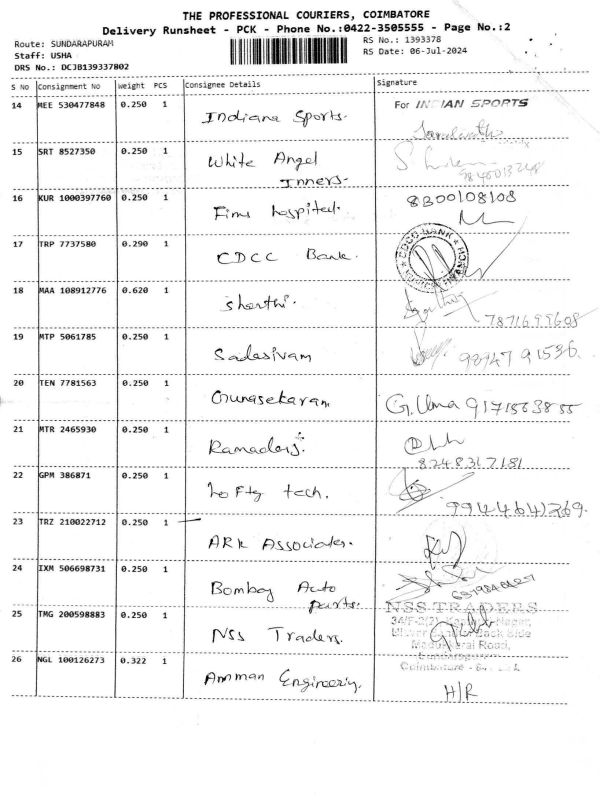 THE PROFESSIONAL COURIERS, COIMBATORE
Delivery Runsheet - PCK - Phone No.:0422-3505555 - Page No.:2
Route: SUNDARAPURAM
Staff: USHA
DRS No.: DCJB139337802
RS No.: 1393378
RS Date: 06-Jul-2024
S No Consignment No Weight PCS Consignee Details Signature
14 MEE 530477848 0.250 1 Indiana Sports. For INDIAN SPORTS
15 SRT 8527350 0.250 1 White Angel
Inners.
16 KUR 1000397760 0.250 1 Fims hospital. 8300108108
17 TRP 7737580 0.290 1 CDCC Bank. CDCC BANK
18 MAA 108912776 0.620 1 Sharthi. 7871699608
19 MTP 5061785 0.250 1 Sadasivam 9894791536.
20 TEN 7781563 0.250 1 Gunasekaram G. Uma 9171563855
21 MTR 2465930 0.250 1 8248317181
22 GPM 386871 0.250 1 Lofty tech. 9944641269.
23 TRZ 210022712 0.250 1 ARK Associates.
24 IXM 506698731 0.250 1 Bombay Auto
parts.
25 TMG 200598883 0.250 1 NSS Traders. NSS TRADERS
Back Side
Road,
Coimbatore
26 NGL 100126273 0.322 1 Amman Engineering. H/R